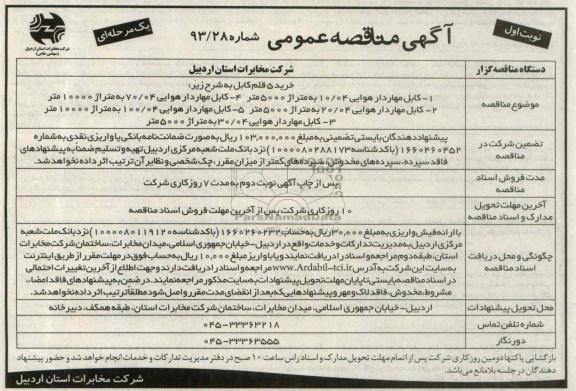 نوبت اول
آگهی مناقصه عمومی شماره ۹۳/۲۸
یک مرحله‌ای
شرکت مخابرات استان اردبیل
(سهامی خاص)
دستگاه مناقصه‌گزار
شرکت مخابرات استان اردبیل
موضوع مناقصه
خرید ۵ قلم کابل به شرح زیر:
۱- کابل مهاردار هوایی ۱۰/۰۴ به متراژ ۵۰۰۰ متر ۴- کابل مهاردار هوایی ۷۰/۰۴ به متراژ ۱۰۰۰۰ متر
۲- کابل مهاردار هوایی ۲۰/۰۴ به متراژ ۵۰۰۰ متر ۵- کابل مهاردار هوایی ۱۰۰/۰۴ به متراژ ۱۰۰۰۰ متر
۳- کابل مهاردار هوایی ۳۰/۰۴ به متراژ ۵۰۰۰ متر
تضمین شرکت در مناقصه
پیشنهاد دهندگان بایستی تضمینی به مبلغ ۱۰۳,۰۰۰,۰۰۰ ریال به صورت ضمانت نامه بانکی یا واریزی نقدی به شماره
۱۶۶۰۴۶۰۴۵۲ (با کد شناسه ۱۰۰۰۰۸۰۲۸۸۱۷۳) نزد بانک ملت شعبه مرکزی اردبیل تهیه و تسلیم ضمنا به پیشنهادهای
فاقد سپرده، سپرده‌های مخدوش، سپرده‌های کمتر از میزان مقرر، چک شخصی و نظایر آن ترتیب اثر داده نخواهد شد.
مدت فروش اسناد مناقصه
پس از چاپ آگهی نوبت دوم به مدت ۷ روز کاری شرکت
آخرین مهلت تحویل مدارک و اسناد مناقصه
۱۰ روز کاری شرکت پس از آخرین مهلت فروش اسناد مناقصه
چگونگی و محل دریافت اسناد مناقصه
با ارائه فیش واریزی به مبلغ ۳۰,۰۰۰ ریال به حساب ۱۶۶۰۲۶۰۲۳۲ (با کد شناسه ۱۰۰۰۰۸۰۱۱۹۱۲۰) نزد بانک ملت شعبه
مرکزی اردبیل به مدیریت تدارکات و خدمات واقع در اردبیل- خیابان جمهوری اسلامی، میدان مخابرات، ساختمان شرکت مخابرات
استان، طبقه دوم مراجعه و اسناد را دریافت نمایند و یا با واریز مبلغ ۱۰,۰۰۰ ریال به حساب فوق در مهلت مقرر از طریق اینترنت
به سایت این شرکت به آدرس www.Ardabil-tci.ir مراجعه و اسناد را دریافت دارند و جهت اطلاع از آخرین تغییرات احتمالی
در اسناد مناقصه بایستی تا پایان مهلت تحویل پیشنهادات به سایت مذکور مراجعه نمایند. در ضمن به پیشنهادهای فاقد امضاء،
مشروط، مخدوش، فاقد لاک و مهر و پیشنهادهایی که بعد از انقضای مدت مقرر واصل شود مطلقا ترتیب اثر داده نخواهد شد.
محل تحویل پیشنهادات
اردبیل- خیابان جمهوری اسلامی، میدان مخابرات، ساختمان شرکت مخابرات استان، طبقه همکف، دبیرخانه
شماره تلفن تماس
۰۴۵-۳۳۳۶۳۲۱۸
دورنگار
۰۴۵-۳۳۳۶۳۵۵۵
بازگشایی پاکتها دومین روز کاری شرکت پس از اتمام مهلت تحویل مدارک و اسناد راس ساعت ۱۰ صبح در دفتر مدیریت تدارکات و خدمات انجام خواهد شد و حضور پیشنهاد
دهندگان در جلسه بلامانع می‌باشد.
شرکت مخابرات استان اردبیل
ParsNamadData